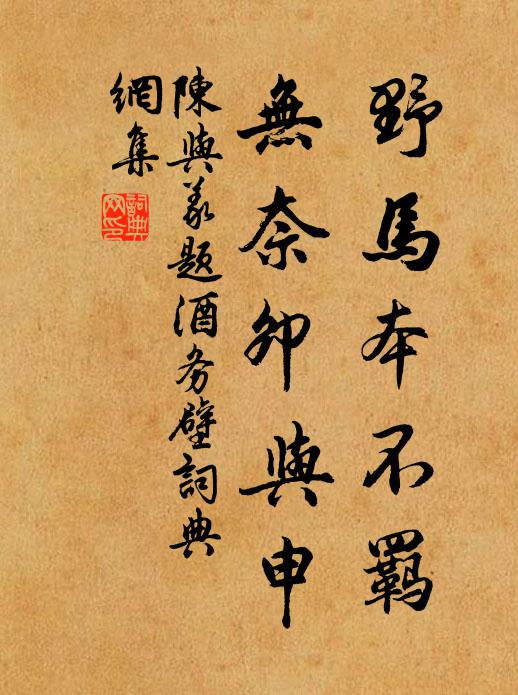 野馬本不羈
無奈卯與申
陳與義題酒务壁詞典
網集
詞典
网印